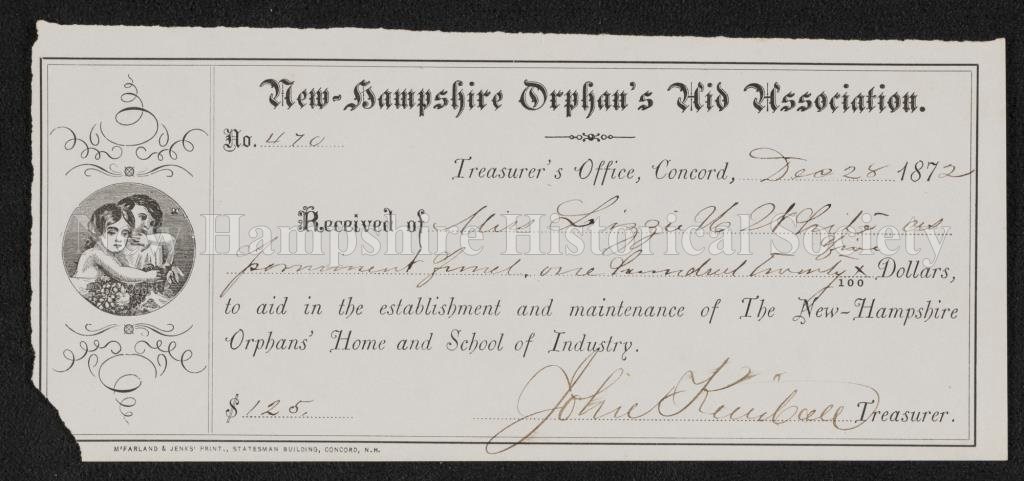 New-Hampshire Orphan's Aid Association.
No. 470
Treasurer's Office, Concord, Dec 28 1872
Received of Miss Lizzie H White as
five
permanent fund. one hundred twenty x/100 Dollars,
to aid in the establishment and maintenance of The New-Hampshire
Orphans' Home and School of Industry.
$ 125. John Kimball Treasurer.
McFARLAND & JENKS' PRINT., STATESMAN BUILDING, CONCORD, N.H.
New Hampshire Historical Society